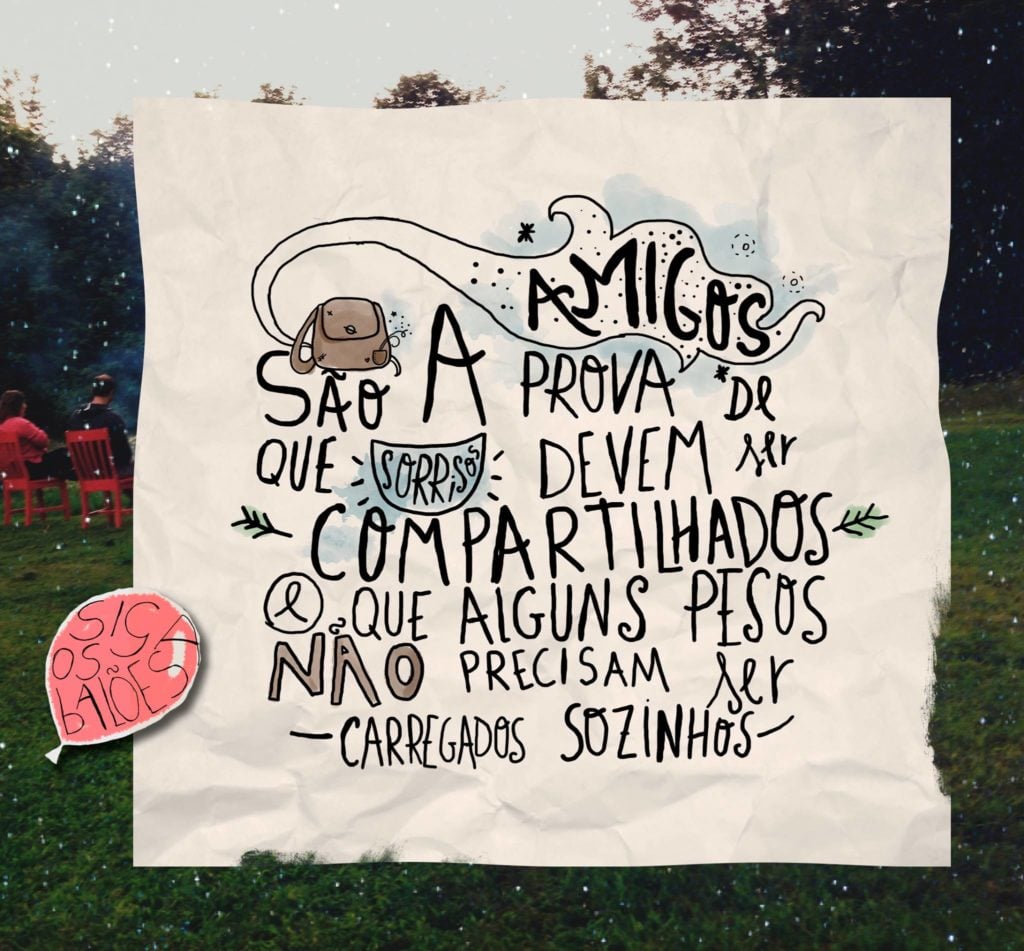 AMIGOS
SÃO A PROVA DE
QUE SORRISOS DEVEM ser
COMPARTILHADOS
e QUE ALGUNS PESOS
NÃO PRECISAM ser
CARREGADOS SOZINHOS
SIGA
OS
BALÕES